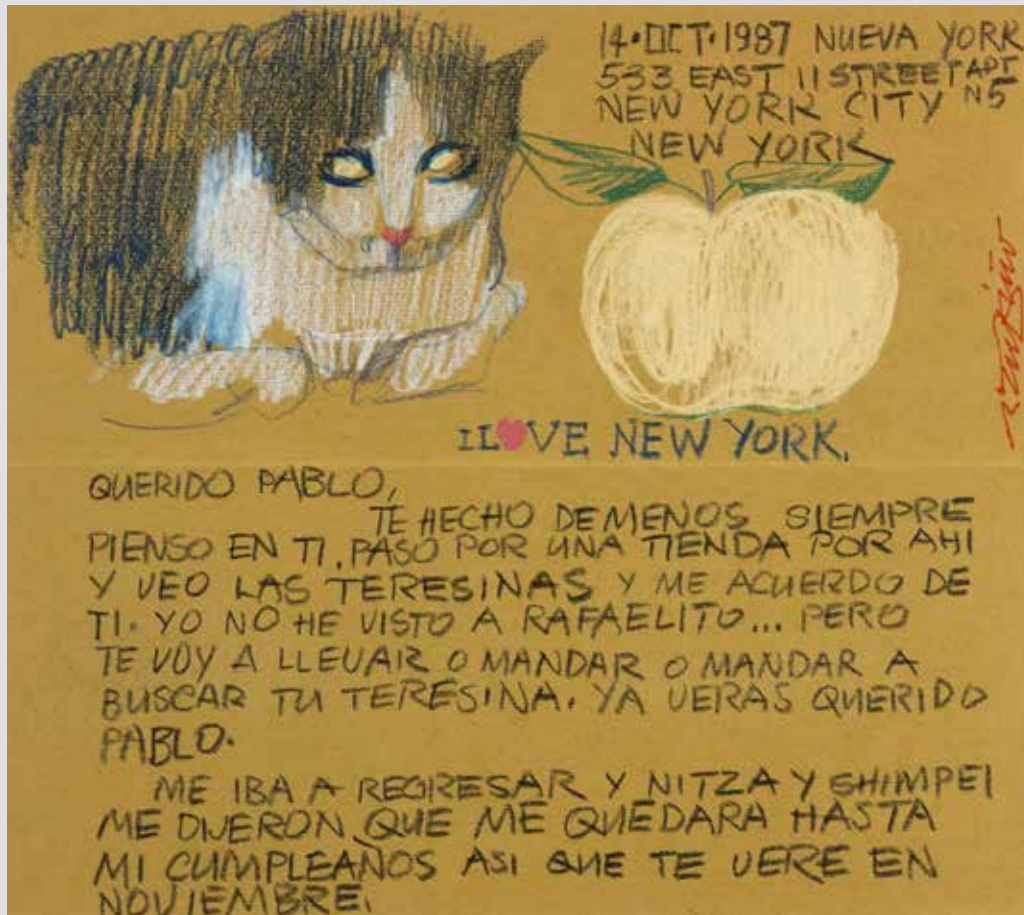 14·OCT·1987 NUEVA YORK
533 EAST 11 STREET APT
N5
NEW YORK CITY
NEW YORK
I LOVE NEW YORK.
QUERIDO PABLO,
TE HECHO DE MENOS SIEMPRE
PIENSO EN TI. PASO POR UNA TIENDA POR AHI
Y VEO LAS TERESINAS Y ME ACUERDO DE
TI. YO NO HE VISTO A RAFAELITO... PERO
TE VOY A LLEVAR O MANDAR O MANDAR A
BUSCAR TU TERESINA. YA VERAS QUERIDO
PABLO.
ME IBA A REGRESAR Y NITZA Y SHIMPEI
ME DIJERON QUE ME QUEDARA HASTA
MI CUMPLEAÑOS ASI QUE TE VERE EN
NOVIEMBRE.